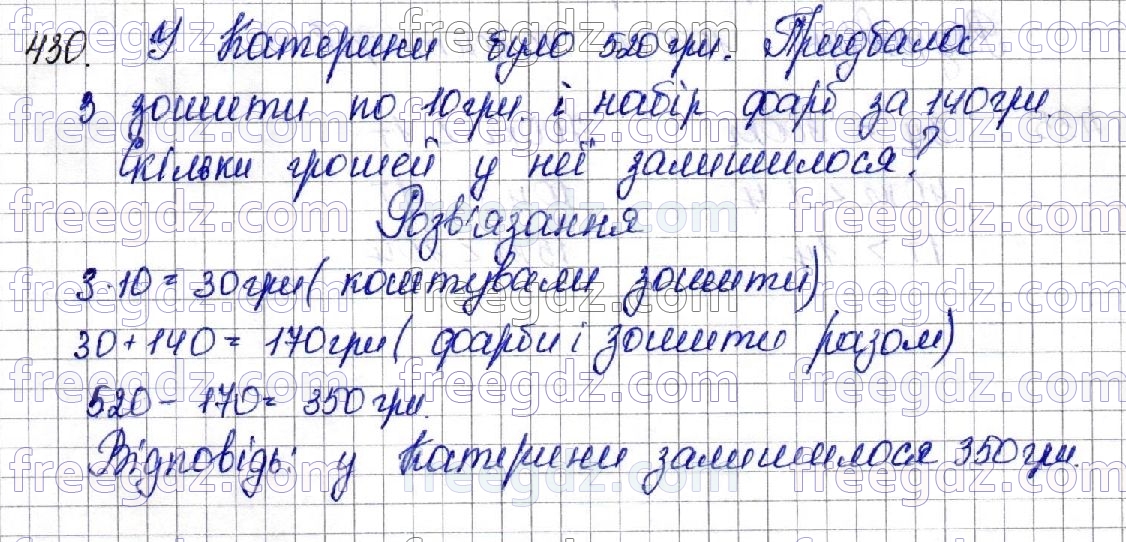 430. У Катерини було 520грн. Придбала
3 зошити по 10грн. і набір фарб за 140грн.
Скільки грошей у неї залишилося?
Розв'язання
3·10 = 30грн( коштували зошити)
30+140= 170грн( фарби і зошити разом)
520- 170= 350грн.
Відповідь: у Катерини залишилося 350грн.
freegdz.com